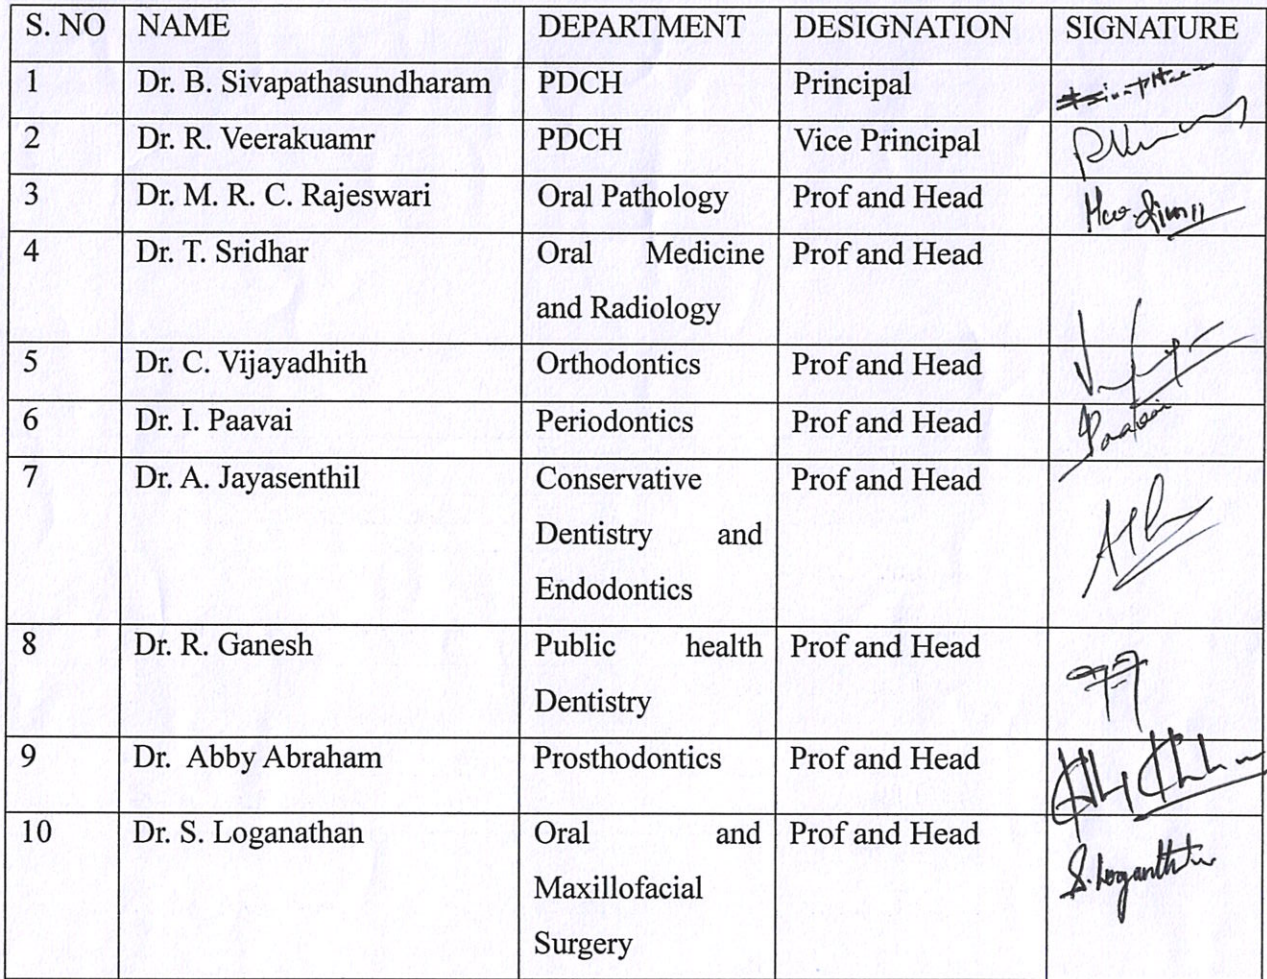 S. NO NAME DEPARTMENT DESIGNATION SIGNATURE
1 Dr. B. Sivapathasundharam PDCH Principal
2 Dr. R. Veerakuamr PDCH Vice Principal
3 Dr. M. R. C. Rajeswari Oral Pathology Prof and Head
4 Dr. T. Sridhar Oral Medicine Prof and Head
and Radiology
5 Dr. C. Vijayadhith Orthodontics Prof and Head
6 Dr. I. Paavai Periodontics Prof and Head Paavai
7 Dr. A. Jayasenthil Conservative Prof and Head
Dentistry and
Endodontics
8 Dr. R. Ganesh Public health Prof and Head
Dentistry
9 Dr. Abby Abraham Prosthodontics Prof and Head
10 Dr. S. Loganathan Oral and Prof and Head
Maxillofacial
Surgery